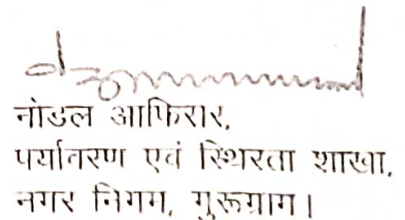 नोडल आफिसर,
पर्यावरण एवं स्थिरता शाखा,
नगर निगम, गुरूग्राम।